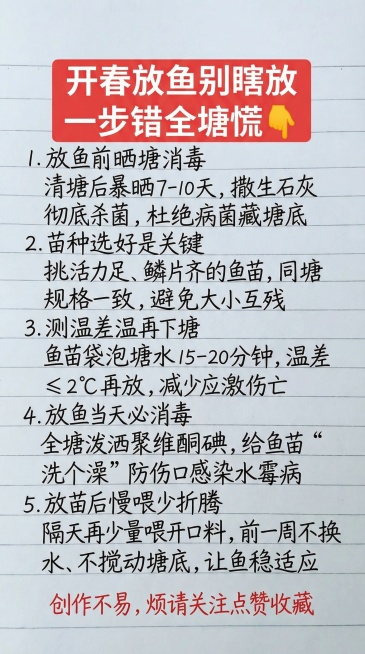 开春放鱼别瞎放
一步错全塘慌👇
1.放鱼前晒塘消毒
清塘后暴晒7-10天,撒生石灰
彻底杀菌,杜绝病菌藏塘底
2.苗种选好是关键
挑活力足、鳞片齐的鱼苗,同塘
规格一致,避免大小互残
3.测温差温再下塘
鱼苗袋泡塘水15-20分钟,温差
≤2℃再放,减少应激伤亡
4.放鱼当天必消毒
全塘泼洒聚维酮碘,给鱼苗“
洗个澡”防伤口感染水霉病
5.放苗后慢喂少折腾
隔天再少量喂开口料,前一周不换
水、不搅动塘底,让鱼稳适应
创作不易,烦请关注点赞收藏